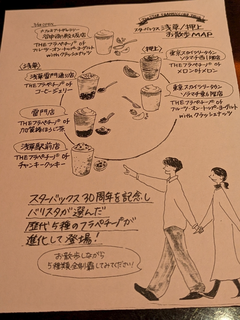 スターバックス 浅草/押上
お散歩MAP
THE フラペチーノ® of
フルーツ・オン・トップ・ヨーグルト
with クラッシュナッツ
(浅草)
THE フラペチーノ® of
コーヒージェリー
雷門店
THE フラペチーノ® of
加賀棒ほうじ茶
浅草駅前店
THE フラペチーノ® of
チャンキークッキー
(押上)
東京スカイツリータウン・
ソラマチ
THE フラペチーノ® of
メロン・トゥ・メロン
東京スカイツリータウン・
ソラマチ
THE フラペチーノ® of
フルーツ・オン・トップ・ヨーグルト
with クラッシュナッツ
スターバックス30周年を記念し
バリスタが選んだ
歴代5種のフラペチーノ®が
進化して登場!
お散歩しながら
5種類全制覇してみてください!